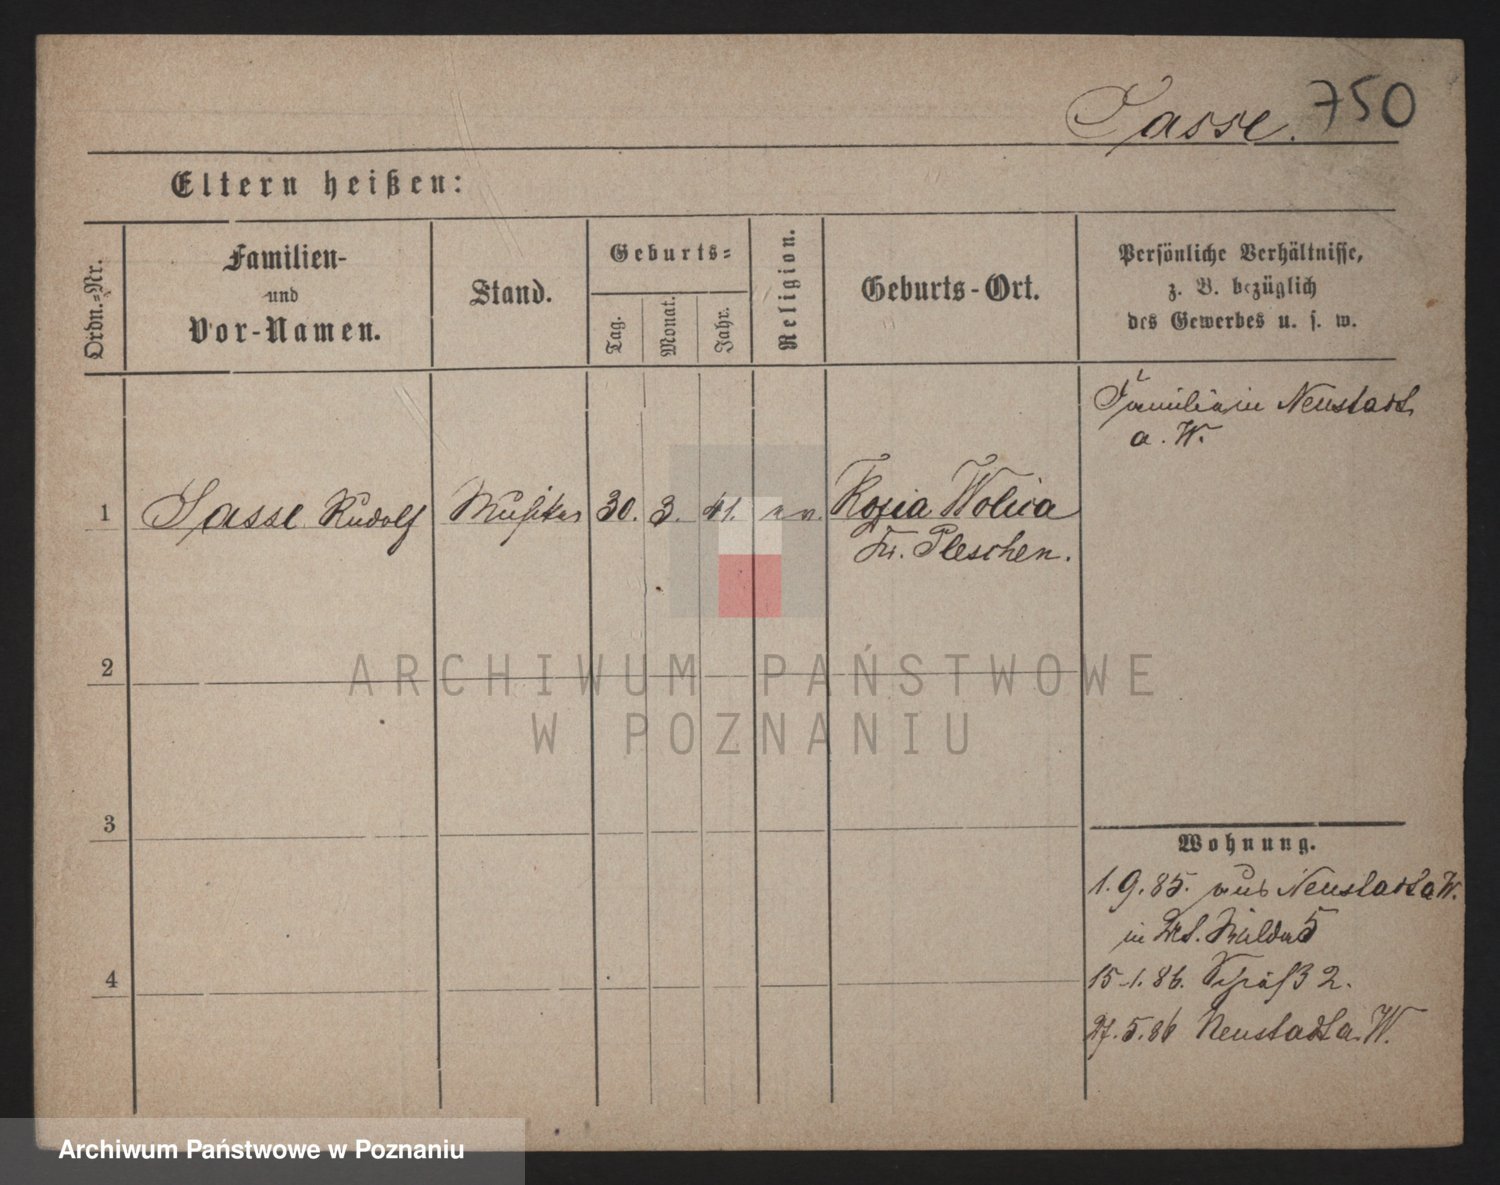 Sasse. 750
Eltern heißen:
Ordn.-Nr.
Familien-
und
Vor-Namen.
Stand.
Geburts-
Tag.
Monat.
Jahr.
Religion.
Geburts-Ort.
Persönliche Verhältnisse,
z. B. bezüglich
des Gewerbes u. s. w.
Familie in Neustadt
a. W.
1 Sasse Rudolf Musikus 30. 3. 41. Rozia Wolica
Kr. Pleschen.
2
3
4
Wohnung.
1. 9. 85. aus Neustadt a W.
in 5
15 1. 86. 2.
27. 5. 86 Neustadt a. W.
ARCHIWUM PAŃSTWOWE
W POZNANIU
Archiwum Państwowe w Poznaniu